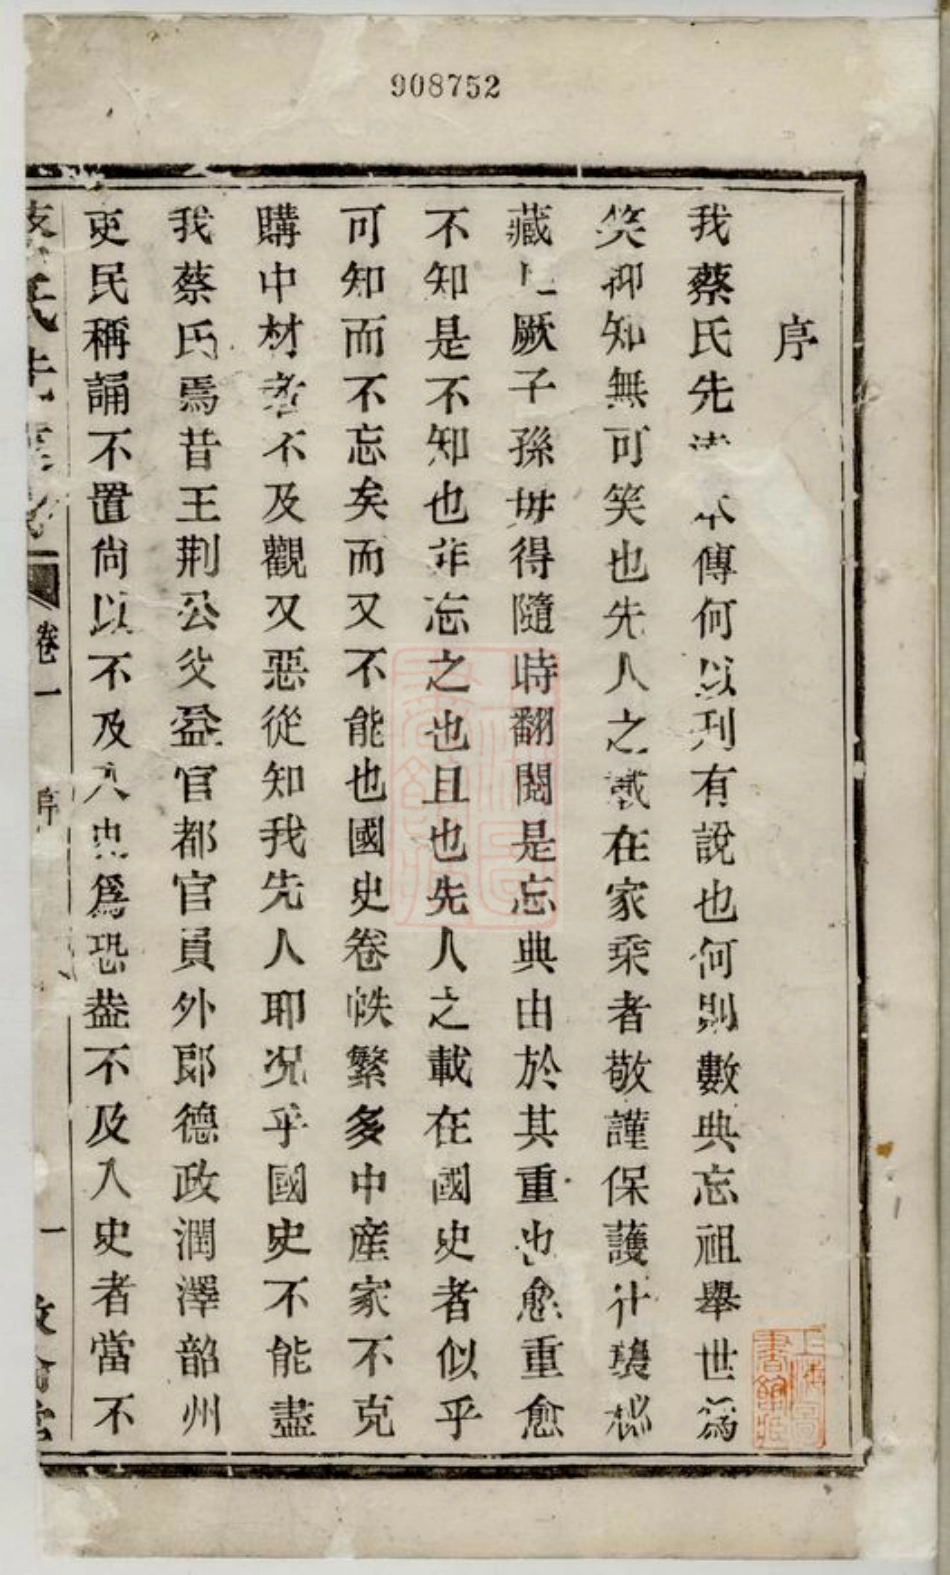 908752
序
我蔡氏先傳何以刊有說也何則數典忘祖舉世為
笑抑知無可笑也先人之載在家乘者敬謹保護什襲
藏厥子孫毋得隨時翻閱是忘典由於其重也愈重愈
不知是不知也非忘之也且也先人之載在國史者似乎
可知而不忘矣而又不能也國史卷帙繁多中產家不克
購中材者不及觀又惡從知我先人耶況乎國史不能盡
我蔡氏焉昔王荊公父益官都官員外郎德政潤澤韶州
吏民稱誦不置尚以不及入史為恐蓋不及入史者當不
蔡氏先 卷一 序 一
上海圖書館藏